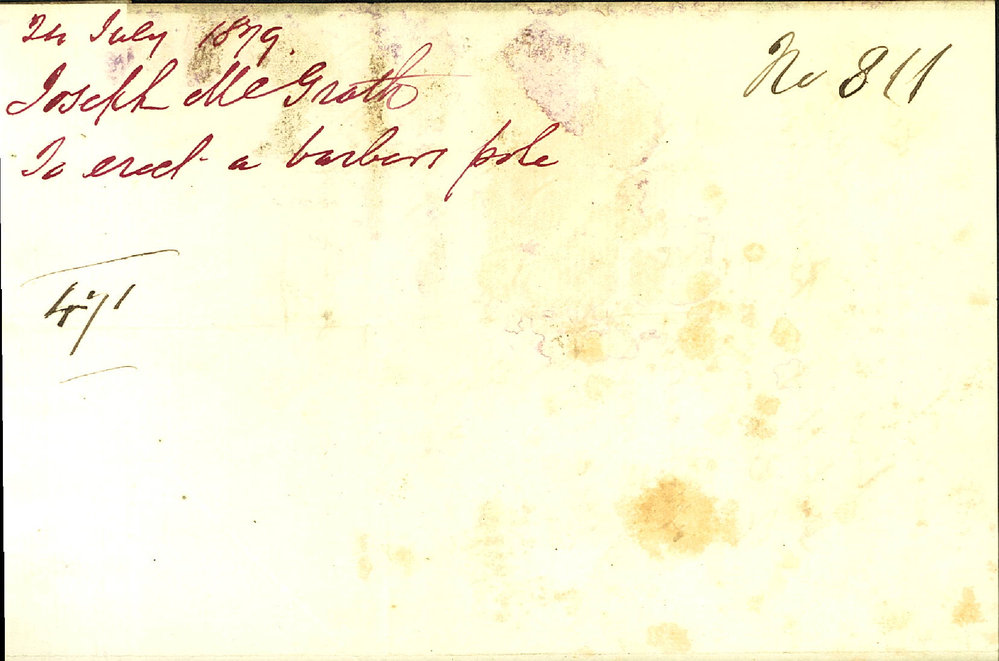 24 July 1879.
Joseph McGrath
To erect a barbers pole
No 811
471